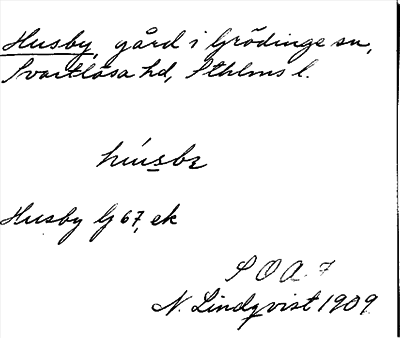 Husby, gård i Grödinge sn,
Svartlösa hd, Sthlms l.
Husby Gj 67, ek
S O A
N. Lindqvist 1909